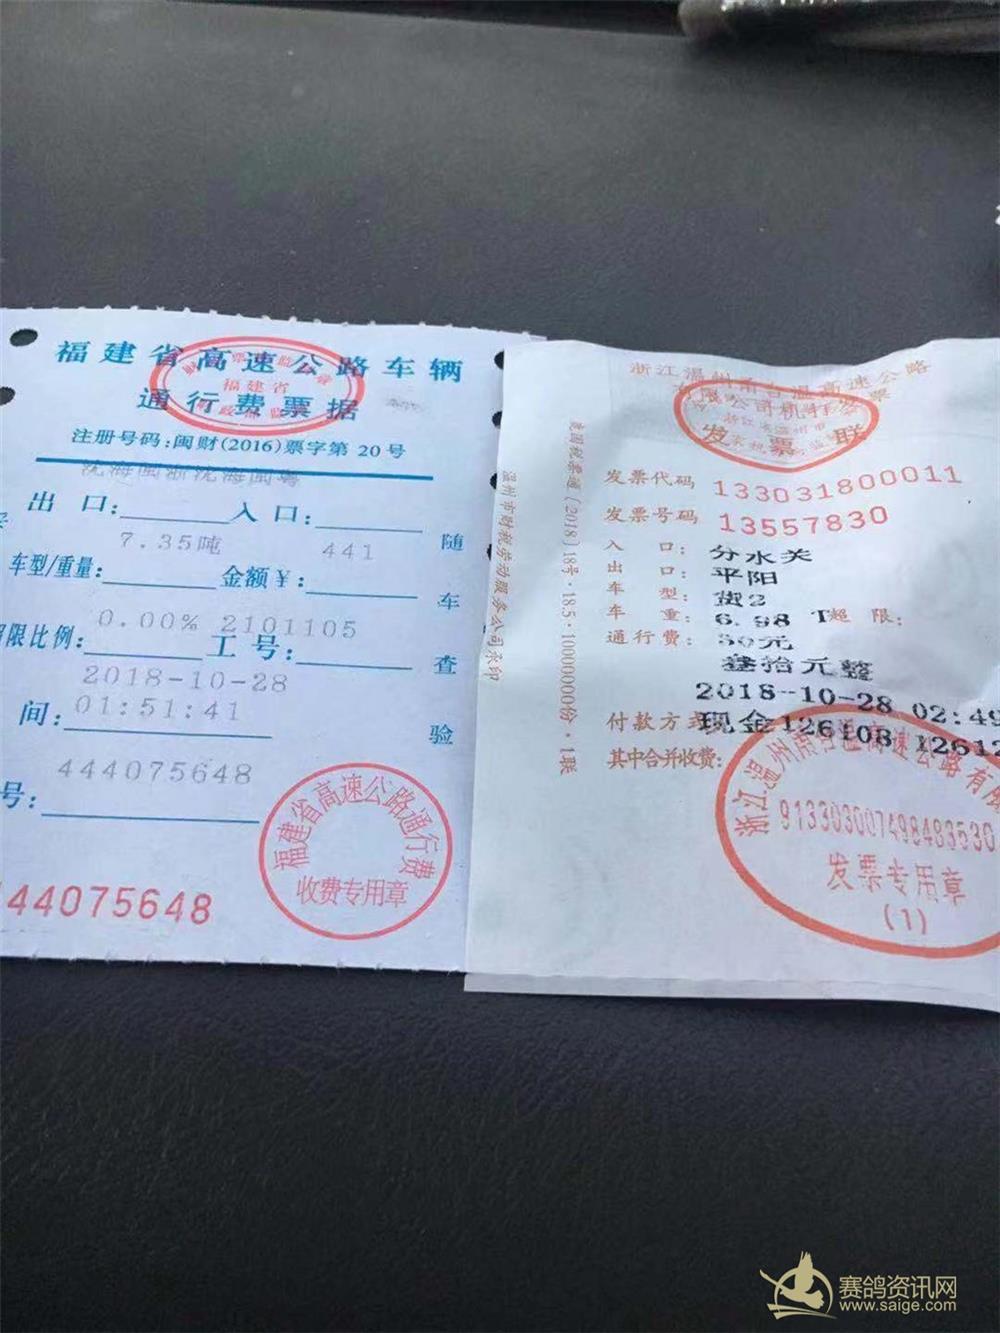 福建省高速公路车辆
通行费票据
福建省
注册号码:闽财(2016)票字第 20号
沈海闽浙沈海闽粤
出 口: 入口:
7.35吨 441
车型/重量: 金额¥:
0.00% 2101105
限比例: 工号:
2018-10-28
间: 01:51:41
444075648
号:
随
车
查
验
44075648
福建省高速公路通行费
收费专用章
浙江温州甬台温高速公路
有限公司机打发票
发票联
发票代码 133031800011
发票号码 13557830
入 口: 分水关
出 口: 平阳
车 型: 货2
车 重: 6.98 T超 限:
通行费: 30元
叁拾元整
2018-10-28 02:49
付款方式 现金126108 12612
其中合并收费:
国税票通(2018)18号·18.5·10000000份·1联
温州市财税劳动服务公司承印
浙江温州甬台温高速公路有限
913303007498483530
发票专用章
(1)
赛鸽资讯网
www.saige.com